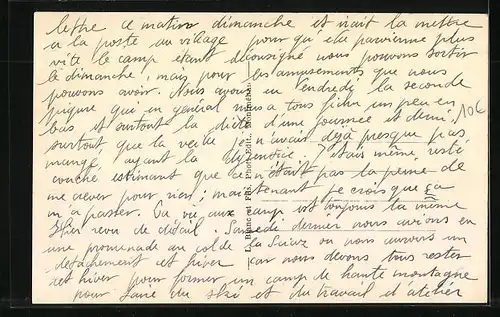 lettre ce matin dimanche et irait la mettre
a la poste au village pour qu'elle parvienne plus
vite le camp etant déconsigné nous pouvons sortir
le dimanche, mais pour les amusements que nous
pouvons avoir. Nous avons eu vendredi la seconde
piqure qui en général nous a tous fichu un peu en
bas et surtout la diète d'une journée et demi,
surtout que la veille je n'avais déjà presque pas
mangé ayant la dysenterie. J'étais même resté
couché estimant que ce n'était pas la peine de
me lever pour rien; maintenant je crois que ça
m'a passer. La vie aux camp est toujours la même
Hier revu de détail. Samedi dernier nous avions eu
une promenade au col de la ou nous aurons un
detachement cet hiver car nous devons tous rester
cet hiver pour former un camp de haute montagne
pour faire du ski et du travail d'atelier
L. Blanc et Fils, Phot. Edit.,